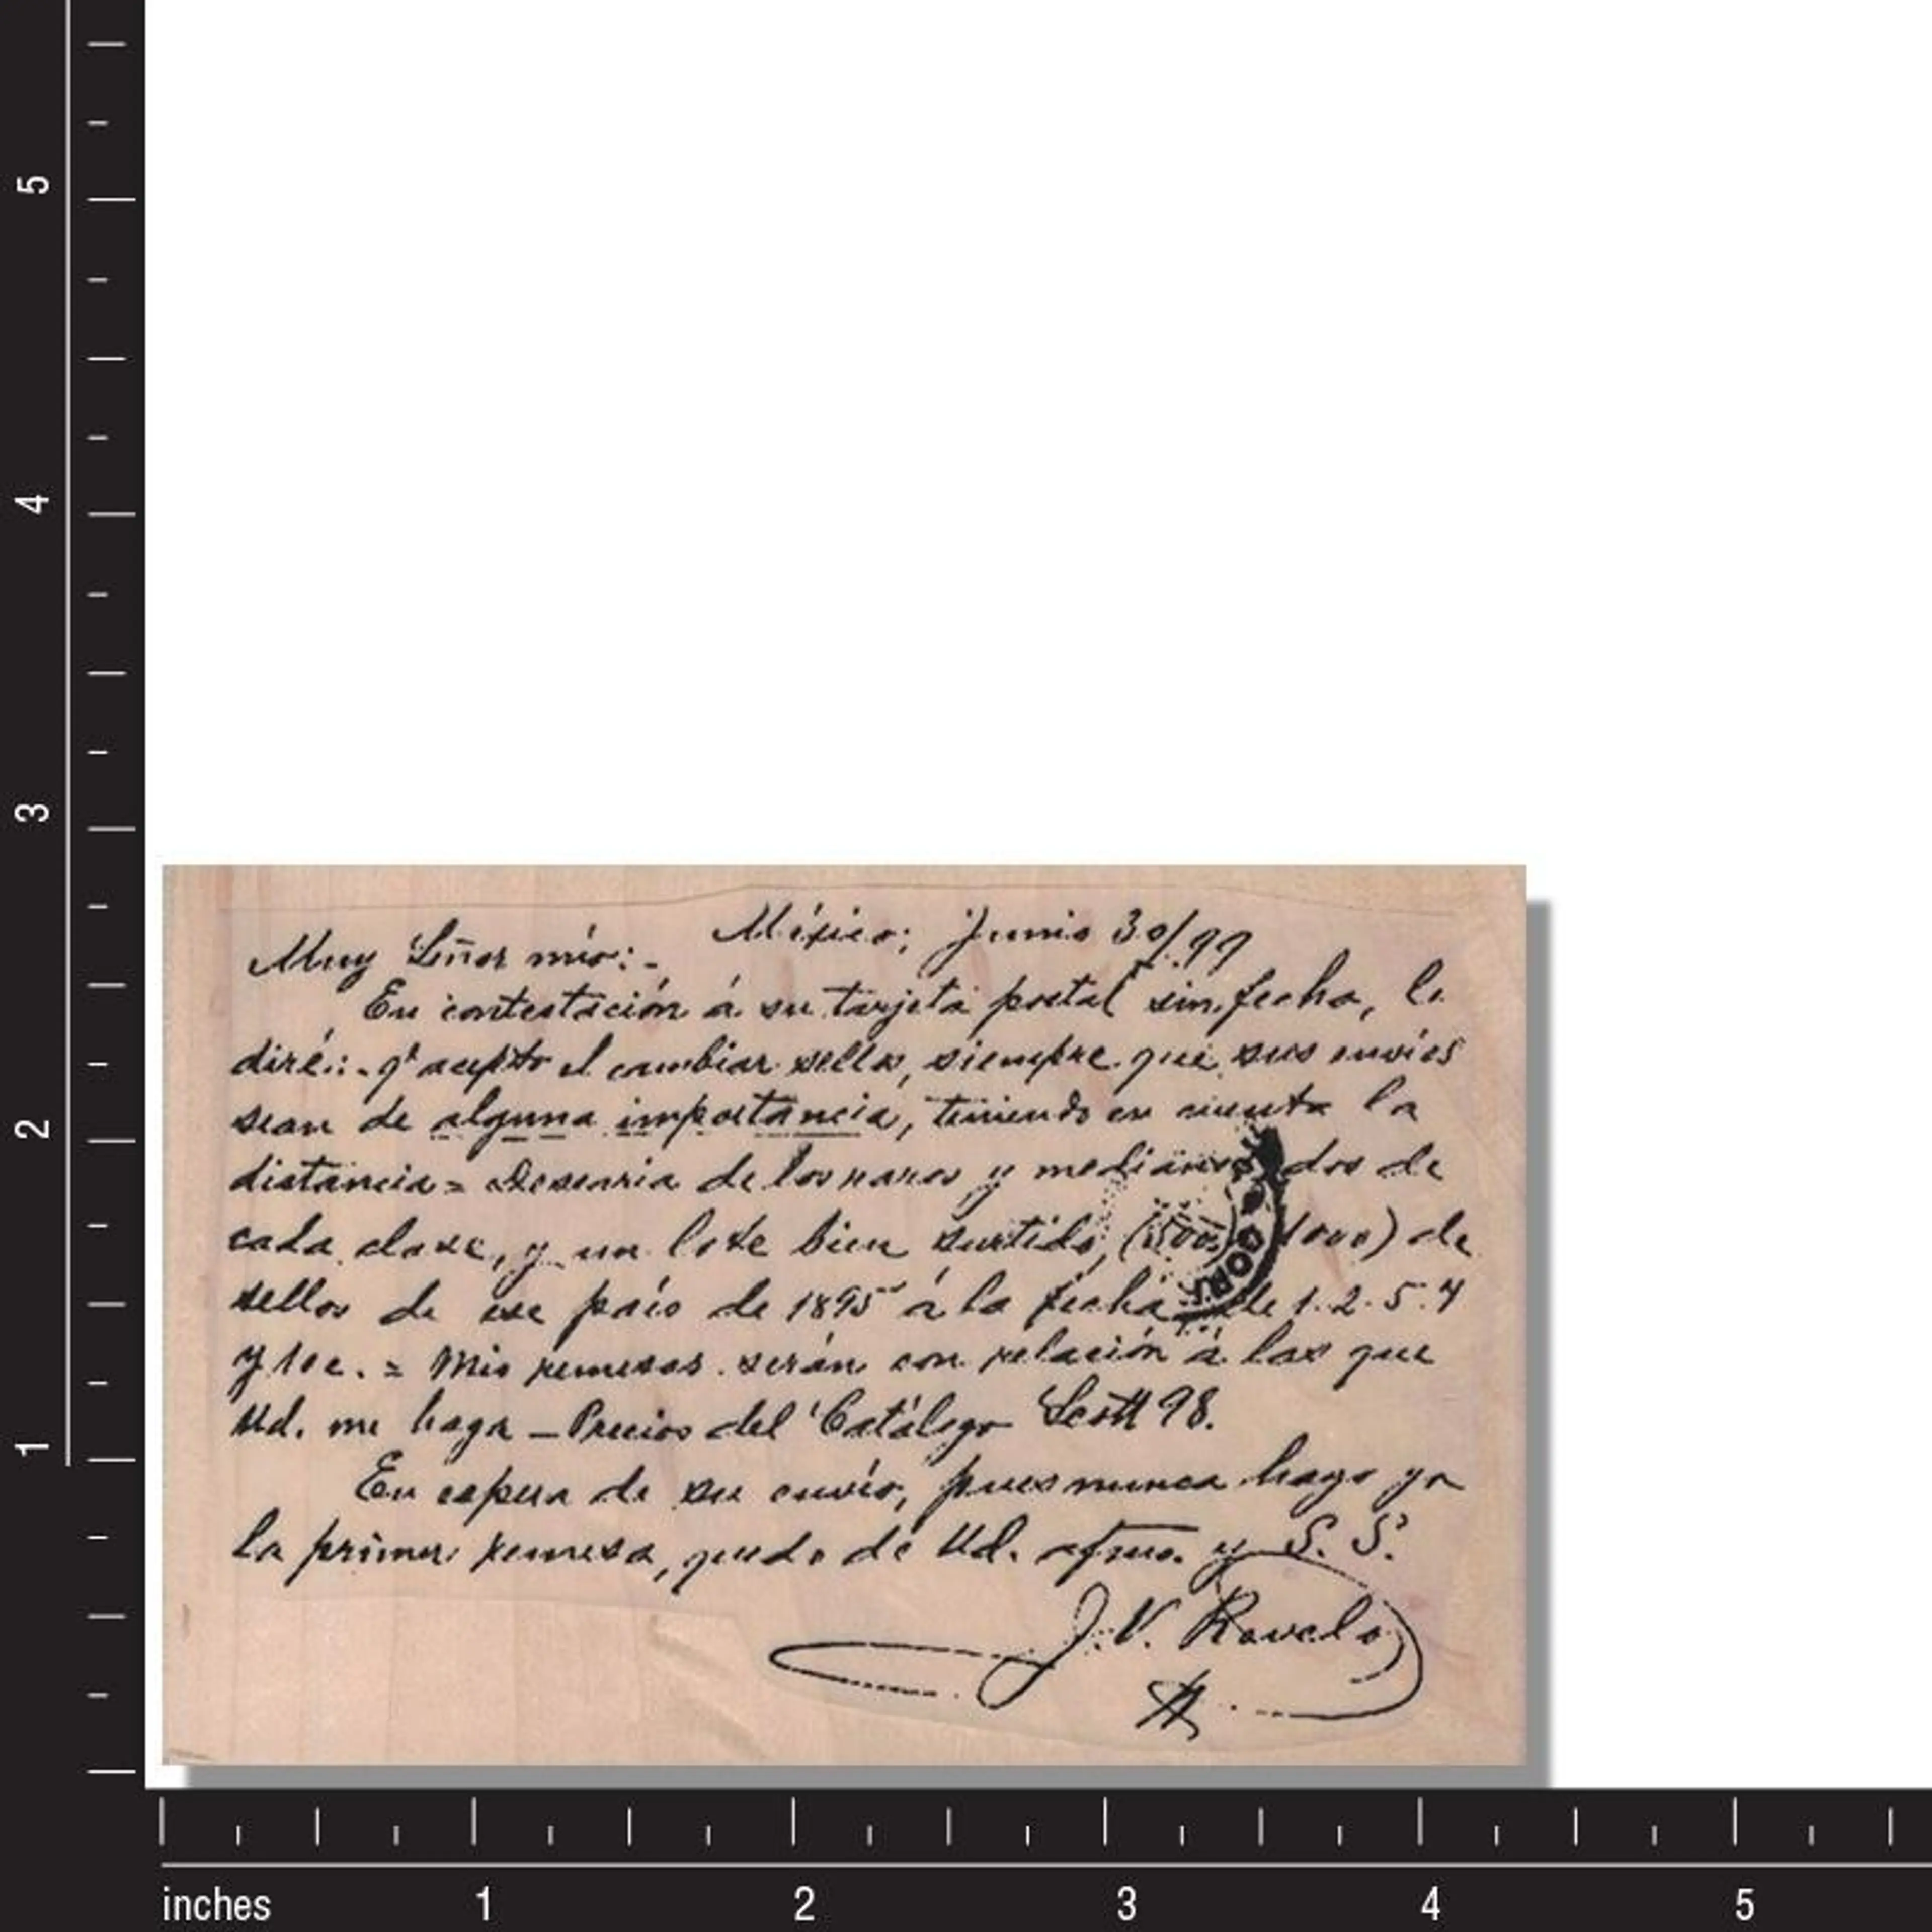 México; Junio 30/99
Muy Señor mío:-
En contestación á su tarjeta postal sin fecha, le
diré:- qe acepto el cambiar sellos, siempre que sus envíos
sean de alguna importancia, teniendo en cuenta la
distancia = Desearia de los raros y medianos dos de
cada clase, y un lote bien surtido, (500 1000) de
sellos de ese país de 1895 á la fecha de 1. 2. 5. 4
y 10c. = Mis remesas serán con relación á las que
Ud. me haga - Precios del Catálogo Scott 98.
En espera de su envío, pues nunca hago yo
la primer remesa, quedo de Ud. afmo. y S. S.
J. V. Ravelo
5
4
3
2
1
inches 1 2 3 4 5